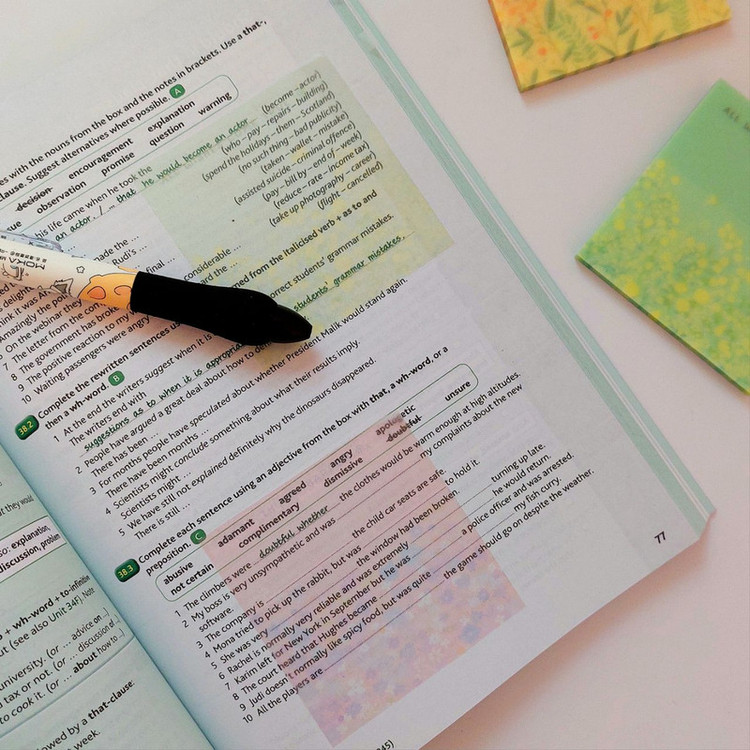 es with the nouns from the box and the notes in brackets. Use a that-,
lause. Suggest alternatives where possible. A
decision encouragement explanation warning
ue observation promise question
his life came when he took the
an actor. / – that he would become an actor
(become – actor)
(who – pay – repairs – building)
(spend the holidays – them – Scotland)
(no such thing – bad publicity)
(taken – wallet – mistake)
(assisted suicide – criminal offence)
(pay – bill by – end of – week)
(reduce – rate – income tax)
(take up photography – career)
(flight – cancelled)
made the ...
Rudi's ...
final ...
considerable ...
ard the ...
MOKA
delight
Amazingly the po
On the webinar they
7 The letter from the com
8 The government has brok
9 The positive reaction to my
10 Waiting passengers were angry
38.2 Complete the rewritten sentences us ned from the italicised verb + as to and
then a wh-word. B
1 At the end the writers suggest when it is orrect students' grammar mistakes.
The writers end with
suggestions as to when it is appropria students' grammar mistakes.
2 People have argued a great deal about how to de
There has been ...
3 For months people have speculated about whether President Malik would stand again.
There have been months ...
4 Scientists might conclude something about what their results imply.
Scientists might ...
5 We have still not explained definitively why the dinosaurs disappeared.
There is still ...
38.3 Complete each sentence using an adjective from the box with that, a wh-word, or a
preposition. C
abusive adamant agreed angry apologetic
not certain complimentary dismissive doubtful unsure
1 The climbers were doubtful whether the clothes would be warm enough at high altitudes.
2 My boss is very unsympathetic and was my complaints about the new
software.
3 The company is the child car seats are safe.
4 Mona tried to pick up the rabbit, but was to hold it.
5 She was very the window had been broken.
6 Rachel is normally very reliable and was extremely turning up late.
7 Karim left for New York in September but he was he would return.
8 The court heard that Hughes became a police officer and was arrested.
9 Judi doesn't normally like spicy food, but was quite my fish curry.
10 All the players are the game should go on despite the weather.
77
t they would
so: explanation,
discussion, problem
+ wh-word + to-infinitive
ut (see also Unit 34F). Note
university. (or ... advice on ...)
tax or not. (or ... discussion of ...)
to cook it. (or ... about how to ...)
llowed by a that-clause:
week.
345)
ALL